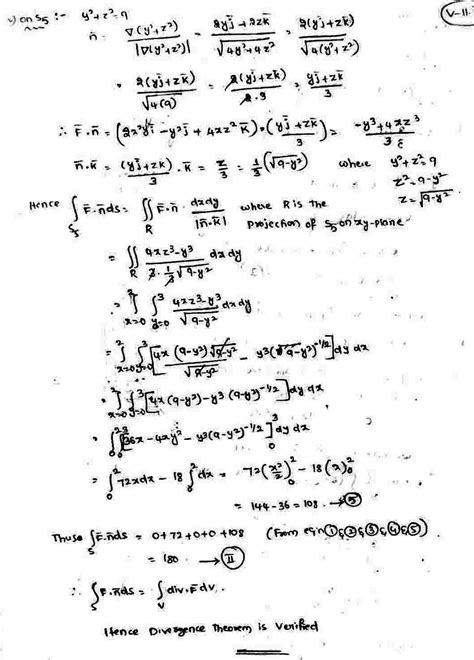 v) on S5 :- y²+z²=9
V-11
n̄ = ∇(y²+z²) / |∇(y²+z²)| = 2yj̄+2zk̄ / √4y²+4z² = 2(yj̄+zk̄) / √4(y²+z²)
= 2(yj̄+zk̄) / √4(9) = 2(yj̄+zk̄) / 2·3 = yj̄+zk̄ / 3
∴ F̄·n̄ = (2x²yī - y²j̄ + 4xz²k̄)·(yj̄+zk̄ / 3) = -y³+4xz³ / 3
n̄·k̄ = (yj̄+zk̄)/3 · k̄ = z/3 = 1/3(√9-y²) where y²+z²=9
z²=9-y²
z=√9-y²
Hence ∫S5 F̄·n̄ds = ∬R F̄·n̄ · dxdy / |n̄·k̄| where R is the
projection of S5 on xy-plane
= ∬R 4xz³-y³ / 3·1/3√9-y² dxdy
= ∫²x=0 ∫³y=0 4xz³-y³ / √9-y² dxdy
= ∫²x=0 ∫³y=0 [4x(9-y²)√9-y² / √9-y² - y³(9-y²)^-1/2] dy dx
= ∫²x=0 ∫³y=0 [4x(9-y²)-y³(9-y²)^-1/2] dy dx
= ∫²0 ∫³0 [36x-4xy²-y³(9-y²)^-1/2]³0 dy dx
= ∫²0 72xdx - 18∫²0 dx = 72(x²/2)²0 - 18(x)²0
= 144-36 = 108 → ⑤
Thus ∫S F̄·n̄ds = 0+72+0+0+108 (From eqn ①,②,③,④,⑤)
= 180 → Ⅱ
∴ ∫S F̄·n̄ds = ∫V div·F̄ dv.
Hence Divergence Theorem is Verified